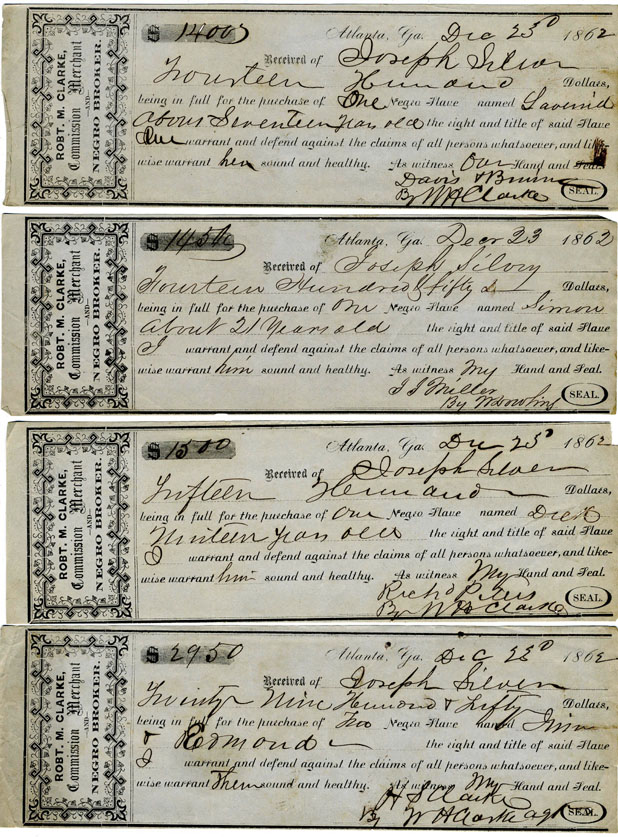 ROBT. M. CLARKE,
Commission Merchant
—AND—
NEGRO BROKER.
$ 1400
Atlanta, Ga. Dec 23d 1862
Received of Joseph Silver
Fourteen Hunnard Dollars,
being in full for the purchase of One Negro Slave named Lavinia
about Seventeen years old the right and title of said Slave
warrant and defend against the claims of all persons whatsoever, and like-
wise warrant her sound and healthy. As witness Our Hand and Seal.
Davis &
By W H Clarke
SEAL.
ROBT. M. CLARKE,
Commission Merchant
—AND—
NEGRO BROKER.
$ 1450
Atlanta, Ga. Decr 23 1862
Received of Joseph Silvry
Fourteen Hundred fifty
being in full for the purchase of One Negro Slave named Simon
about 21 Years old the right and title of said Slave
I warrant and defend against the claims of all persons whatsoever, and like-
wise warrant him sound and healthy. As witness My Hand and Seal.
J J Miller
By W Dowling
SEAL.
ROBT. M. CLARKE,
Commission Merchant
—AND—
NEGRO BROKER.
$ 1500
Atlanta, Ga. Dec 23d 1862
Received of Joseph Silver
Fifteen Hunnard Dollars,
being in full for the purchase of One Negro Slave named Dick
Ninteen years old the right and title of said Slave
I warrant and defend against the claims of all persons whatsoever, and like-
wise warrant him sound and healthy. As witness My Hand and Seal.
Richd Peters
By W H Clarke
SEAL.
ROBT. M. CLARKE,
Commission Merchant
—AND—
NEGRO BROKER.
$ 2950
Atlanta, Ga. Dec 23d 1862
Received of Joseph Silver
Twenty Nine Hunnard & Fifty Dollars,
being in full for the purchase of Two Negro Slave named Jim
& Edmond the right and title of said Slave
I warrant and defend against the claims of all persons whatsoever, and like-
wise warrant Them sound and healthy. As witness My Hand and Seal.
H S Clarke
By W H Clarke agt
SEAL.